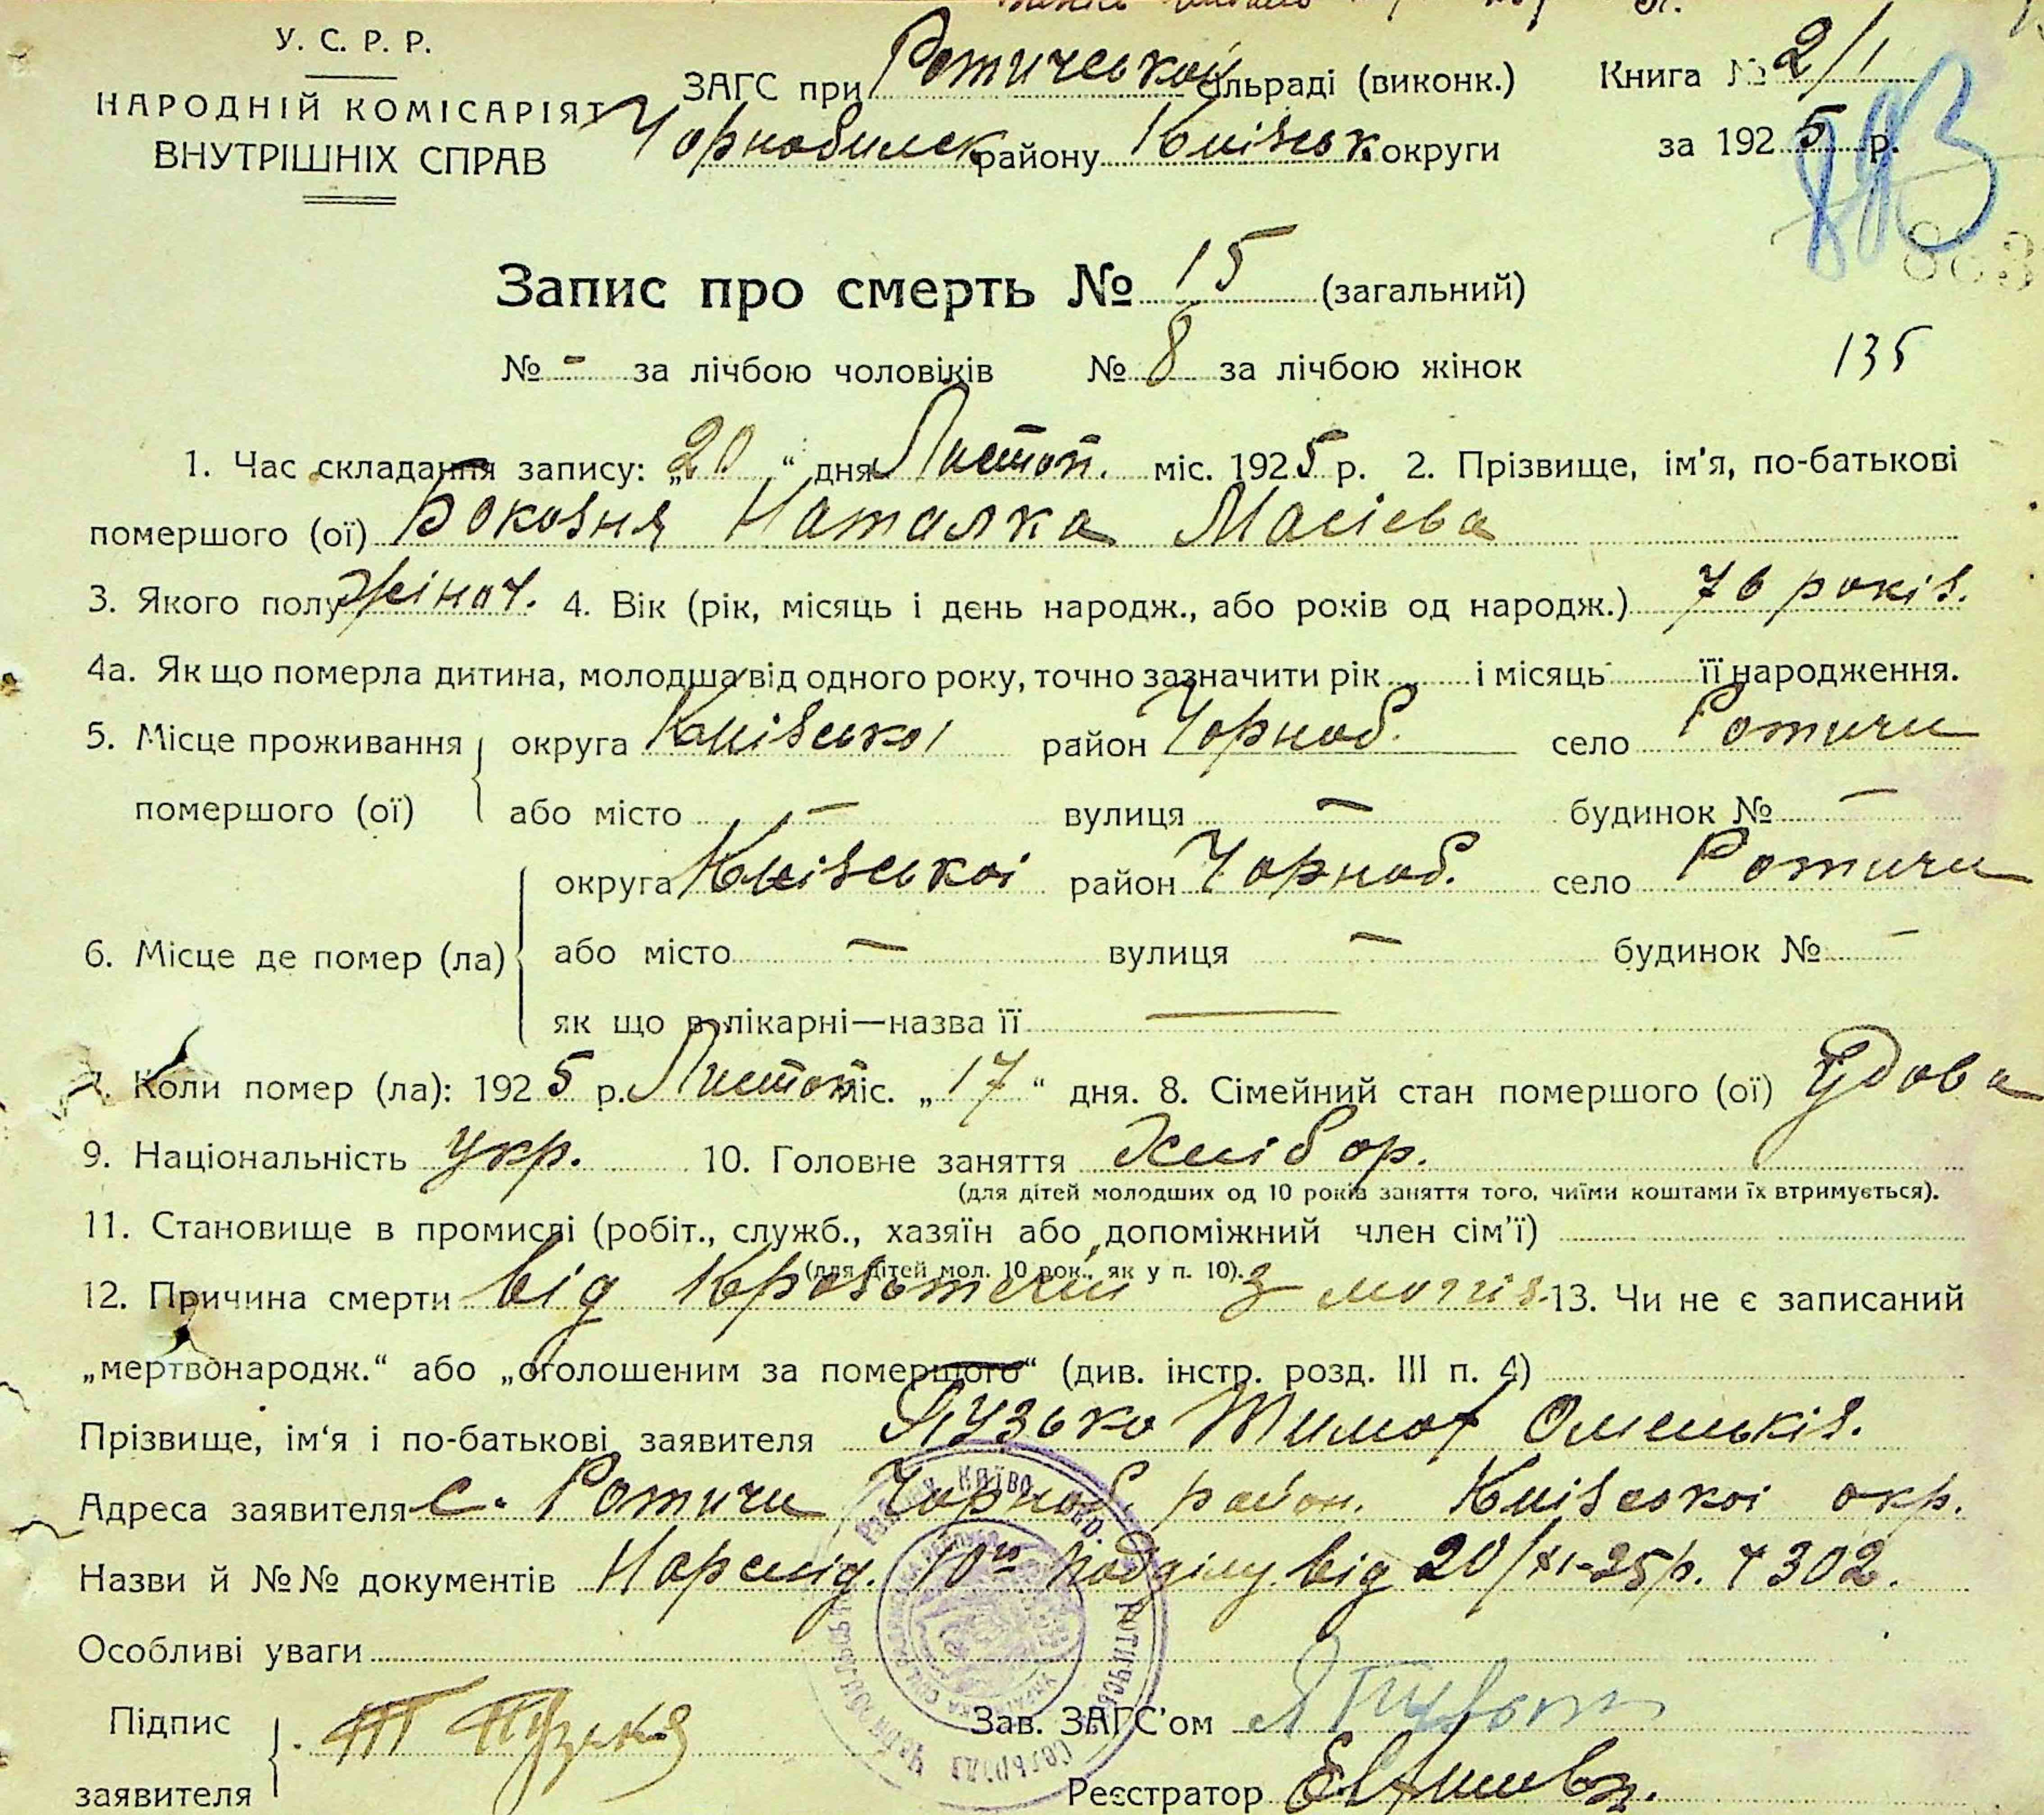 У. С. Р. Р.
НАРОДНІЙ КОМІСАРІЯТ
ВНУТРІШНІХ СПРАВ
ЗАГС при Ротичеської сільраді (виконк.)
Чорнобилськ району Київськ округи
Книга № 2/1
за 1925 р.
863
Запис про смерть № 15 (загальний)
№ - за лічбою чоловіків № 8 за лічбою жінок
135
1. Час складання запису: „20“ дня Листоп. міс. 1925 р. 2. Прізвище, ім'я, по-батькові
помершого (ої) Боковня Наталка Масієва
3. Якого полу жіноч. 4. Вік (рік, місяць і день народж., або років од народж.) 76 років.
4а. Як що померла дитина, молодша від одного року, точно зазначити рік і місяць її народження.
5. Місце проживання округа Київської район Чорноб. село Ротичи
помершого (ої) або місто — вулиця — будинок № —
округа Київськоі район Чорноб. село Ротичи
6. Місце де помер (ла) або місто — вулиця — будинок № —
як що в лікарні—назва її —
7. Коли помер (ла): 1925 р. Листоп міс. „17“ дня. 8. Сімейний стан помершого (ої) Удова
9. Національність Укр. 10. Головне заняття Хлібор.
(для дітей молодших од 10 років заняття того, чиїми коштами їх втримується).
11. Становище в промислі (робіт., служб., хазяїн або допоміжний член сім'ї)
(для дітей мол. 10 рок., як у п. 10).
12. Причина смерти від Кровотечи з 13. Чи не є записаний
„мертвонародж.“ або „оголошеним за померщого“ (див. інстр. розд. III п. 4)
Прізвище, ім'я і по-батькові заявителя Пузько Тимох Омельків.
Адреса заявителя с. Ротичи Чорноб. район. Київськоі окр.
Назви й №№ документів від 20/XI-25 р. 302.
Особливі уваги
Підпис Т Пузько Зав. ЗАГС'ом
заявителя Реєстратор